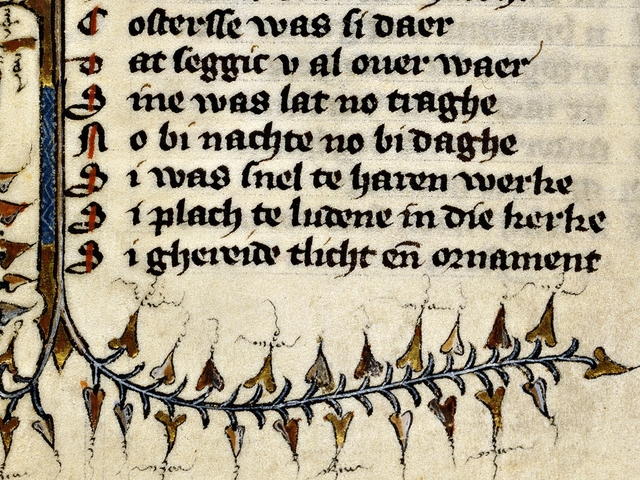 C ostersse was si daer
D at seggic v al ouer waer
S ine was lat no traghe
N o bi nachte no bi daghe
S i was snel te haren werke
S i plach te ludene in die kerke
S i ghereide tlicht en̄ ornament